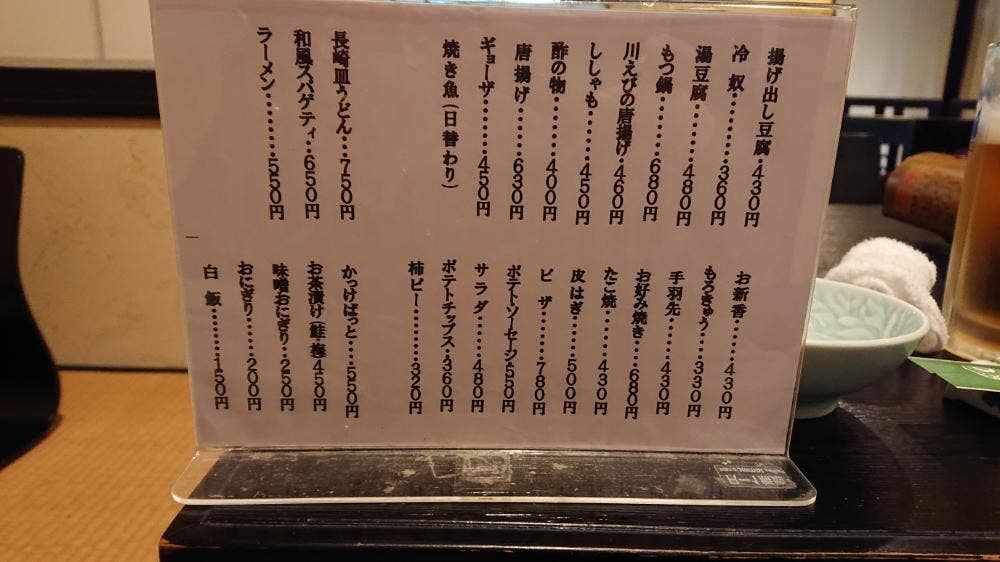 揚げ出し豆腐・430円
冷 奴・・・・・・・360円
湯豆腐・・・・・・480円
もつ鍋・・・・・・680円
川えびの唐揚げ・460円
ししゃも・・・・・450円
酢の物・・・・・・400円
唐揚げ・・・・・・630円
ギョーザ・・・・・450円
焼き魚(日替わり)
長崎皿うどん・・・750円
和風スパゲティ・・650円
ラーメン・・・・・・550円
お新香・・・・・430円
もろきゅう・・・330円
手羽先・・・・・430円
お好み焼き・・・680円
たこ焼・・・・・430円
皮はぎ・・・・・500円
ピ ザ・・・・・・780円
ポテト・ソーセージ550円
サラダ・・・・・480円
ポテトチップス・360円
柿ピー・・・・・320円
かっけばっと・・・550円
お茶漬け(鮭・梅)450円
味噌おにぎり・・250円
おにぎり・・・・・200円
白 飯・・・・・・・150円